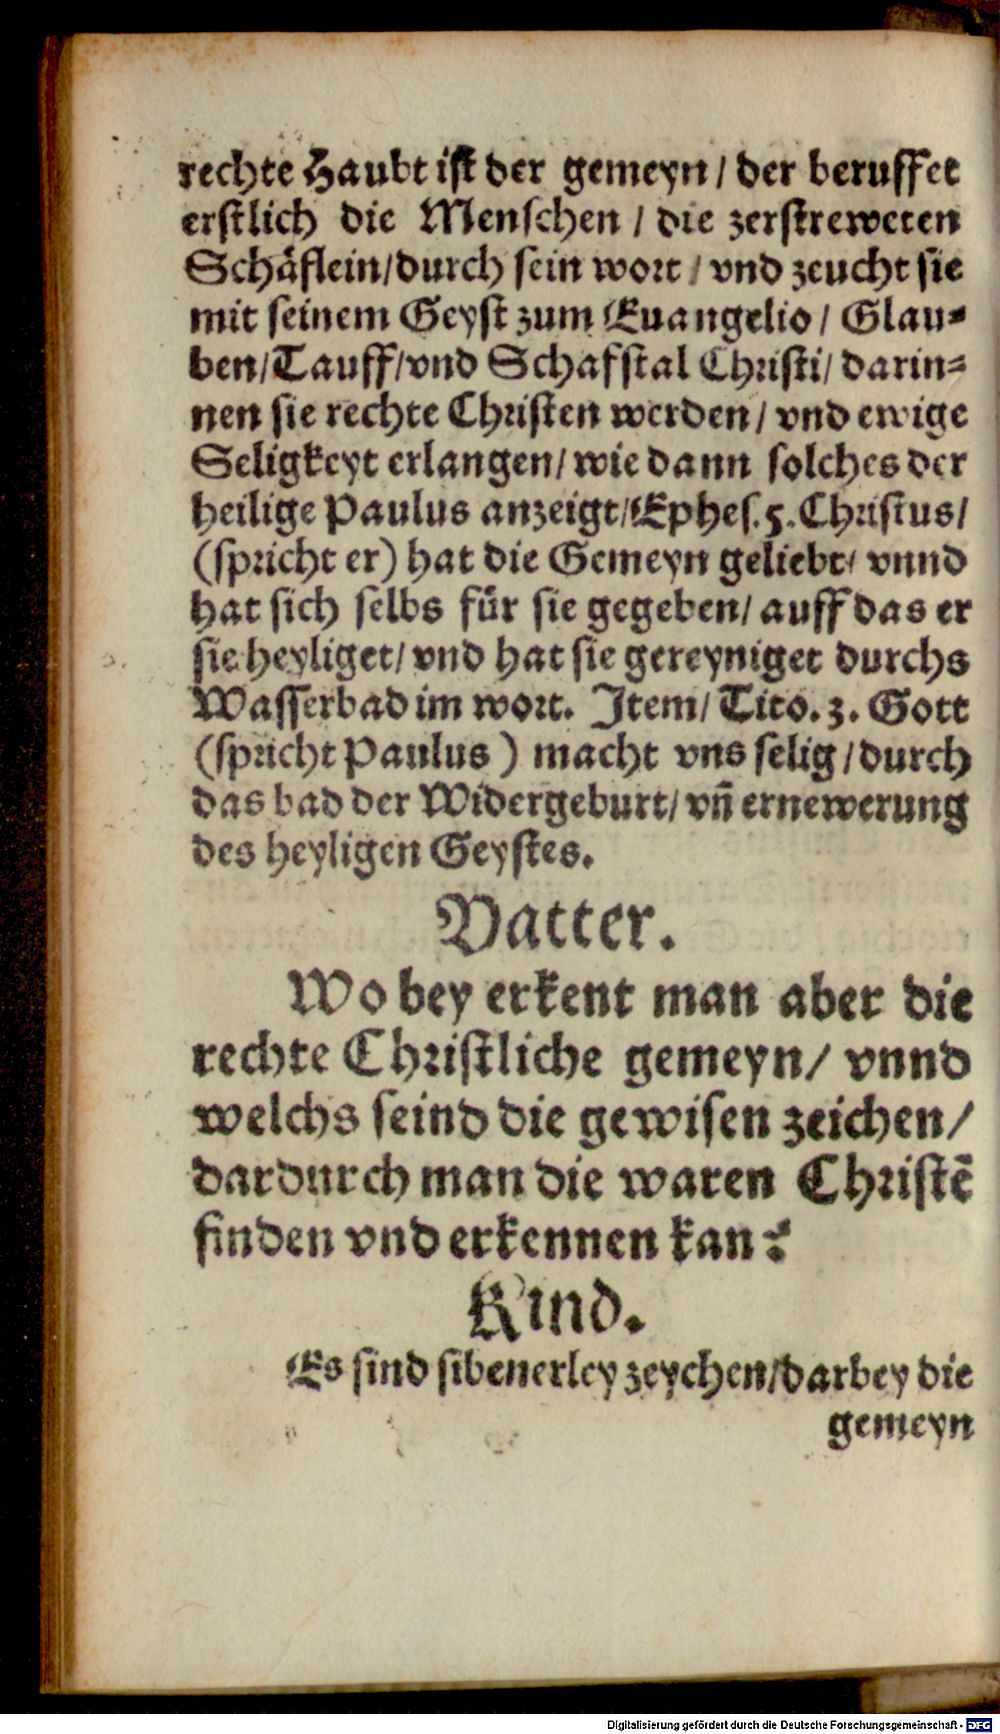 rechte Haubt ist der gemeyn / der beruffet
erstlich die Menschen / die zerstreweten
Schäflein/durch sein wort / vnd zeucht sie
mit seinem Geyst zum Euangelio / Glau=
ben/Tauff/vnd Schafstal Christi/ darin=
nen sie rechte Christen werden/ vnd ewige
Seligkeyt erlangen/ wie dann solches der
heilige Paulus anzeigt/Ephes. 5. Christus/
(spricht er) hat die Gemeyn geliebt/ vnnd
hat sich selbs für sie gegeben/ auff das er
sie heyliget/ vnd hat sie gereyniget durchs
Wasserbad im wort. Item/ Tito. 3. Gott
(spricht Paulus) macht vns selig / durch
das bad der Widergeburt/ vñ ernewerung
des heyligen Geystes.
Vatter.
Wo bey erkent man aber die
rechte Christliche gemeyn/ vnnd
welchs seind die gewisen zeichen/
dardurch man die waren Christē
finden vnd erkennen kan?
Kind.
Es sind sibenerley zeychen/darbey die
gemeyn
Digitalisierung gefördert durch die Deutsche Forschungsgemeinschaft - DFG